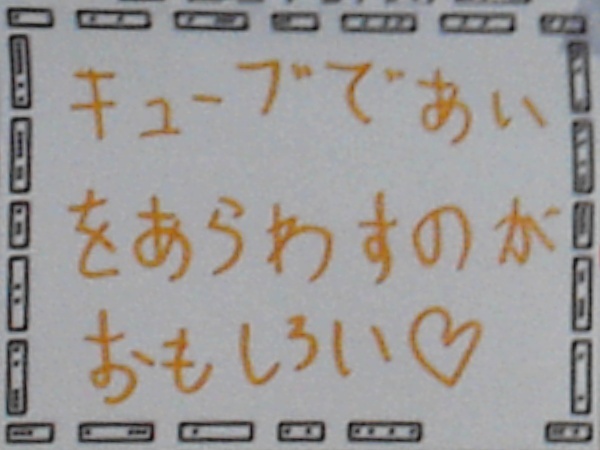 キューブであい
をあらわすのが
おもしろい♡